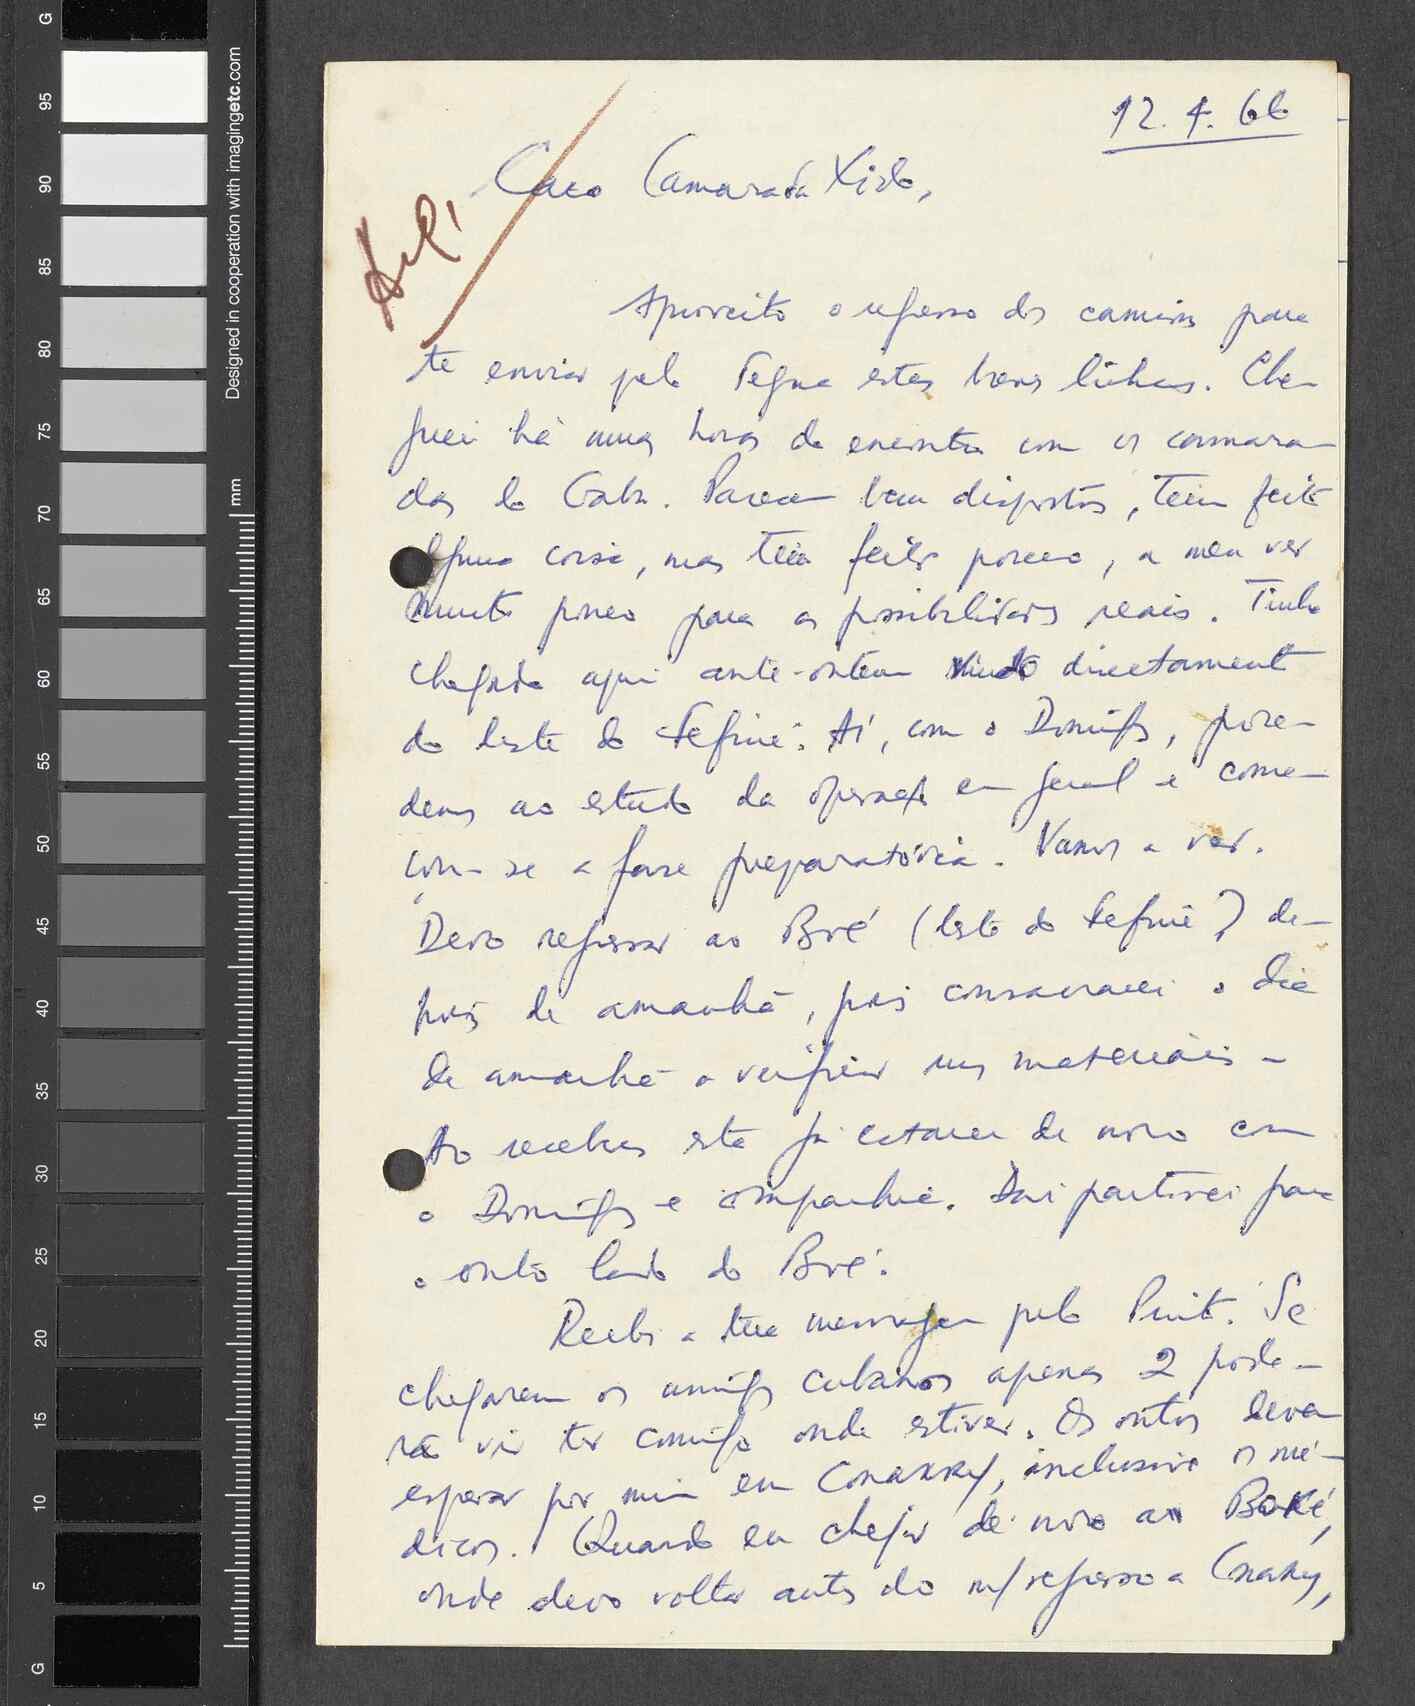 12.4.66
Caro Camarada Xisto,
Arq.
Aproveito o regresso do camion para
te enviar pelo Tegna estas breves linhas. Che-
guei há umas horas do encontro com os camara-
das do Gabu. Parecem bem dispostos, têm feito
alguma coisa, mas têm feito pouco, a meu ver
muito pouco para as possibilidades reais. Tinha
chegado aqui ante-ontem vindo directamente
do leste do . Aí, com o Domingos, proce-
demos ao estudo da operação em geral e come-
çou-se a fase preparatória. Vamos a ver.
Devo regressar ao Boé (leste do ) de-
pois de amanhã, pois consagrarei o dia
de amanhã a verificar uns materiais.
Ao receberes esta já estarei de novo com
o Domingos e companhia. Daí partirei para
o outro lado do Boé.
Recebi a tua mensagem pelo Pinto. Se
chegarem os amigos cubanos apenas 2 pode-
rão vir ter comigo onde estiver. Os outros devem
esperar por mim em Conakry, inclusivé os mé-
dicos. Quando eu chegar de novo a Boké,
onde devo voltar antes do m/regresso a Conakry,
Designed in cooperation with imagingetc.com
mm
G
95
90
85
80
75
70
65
60
55
50
45
40
35
30
25
20
15
10
5
G